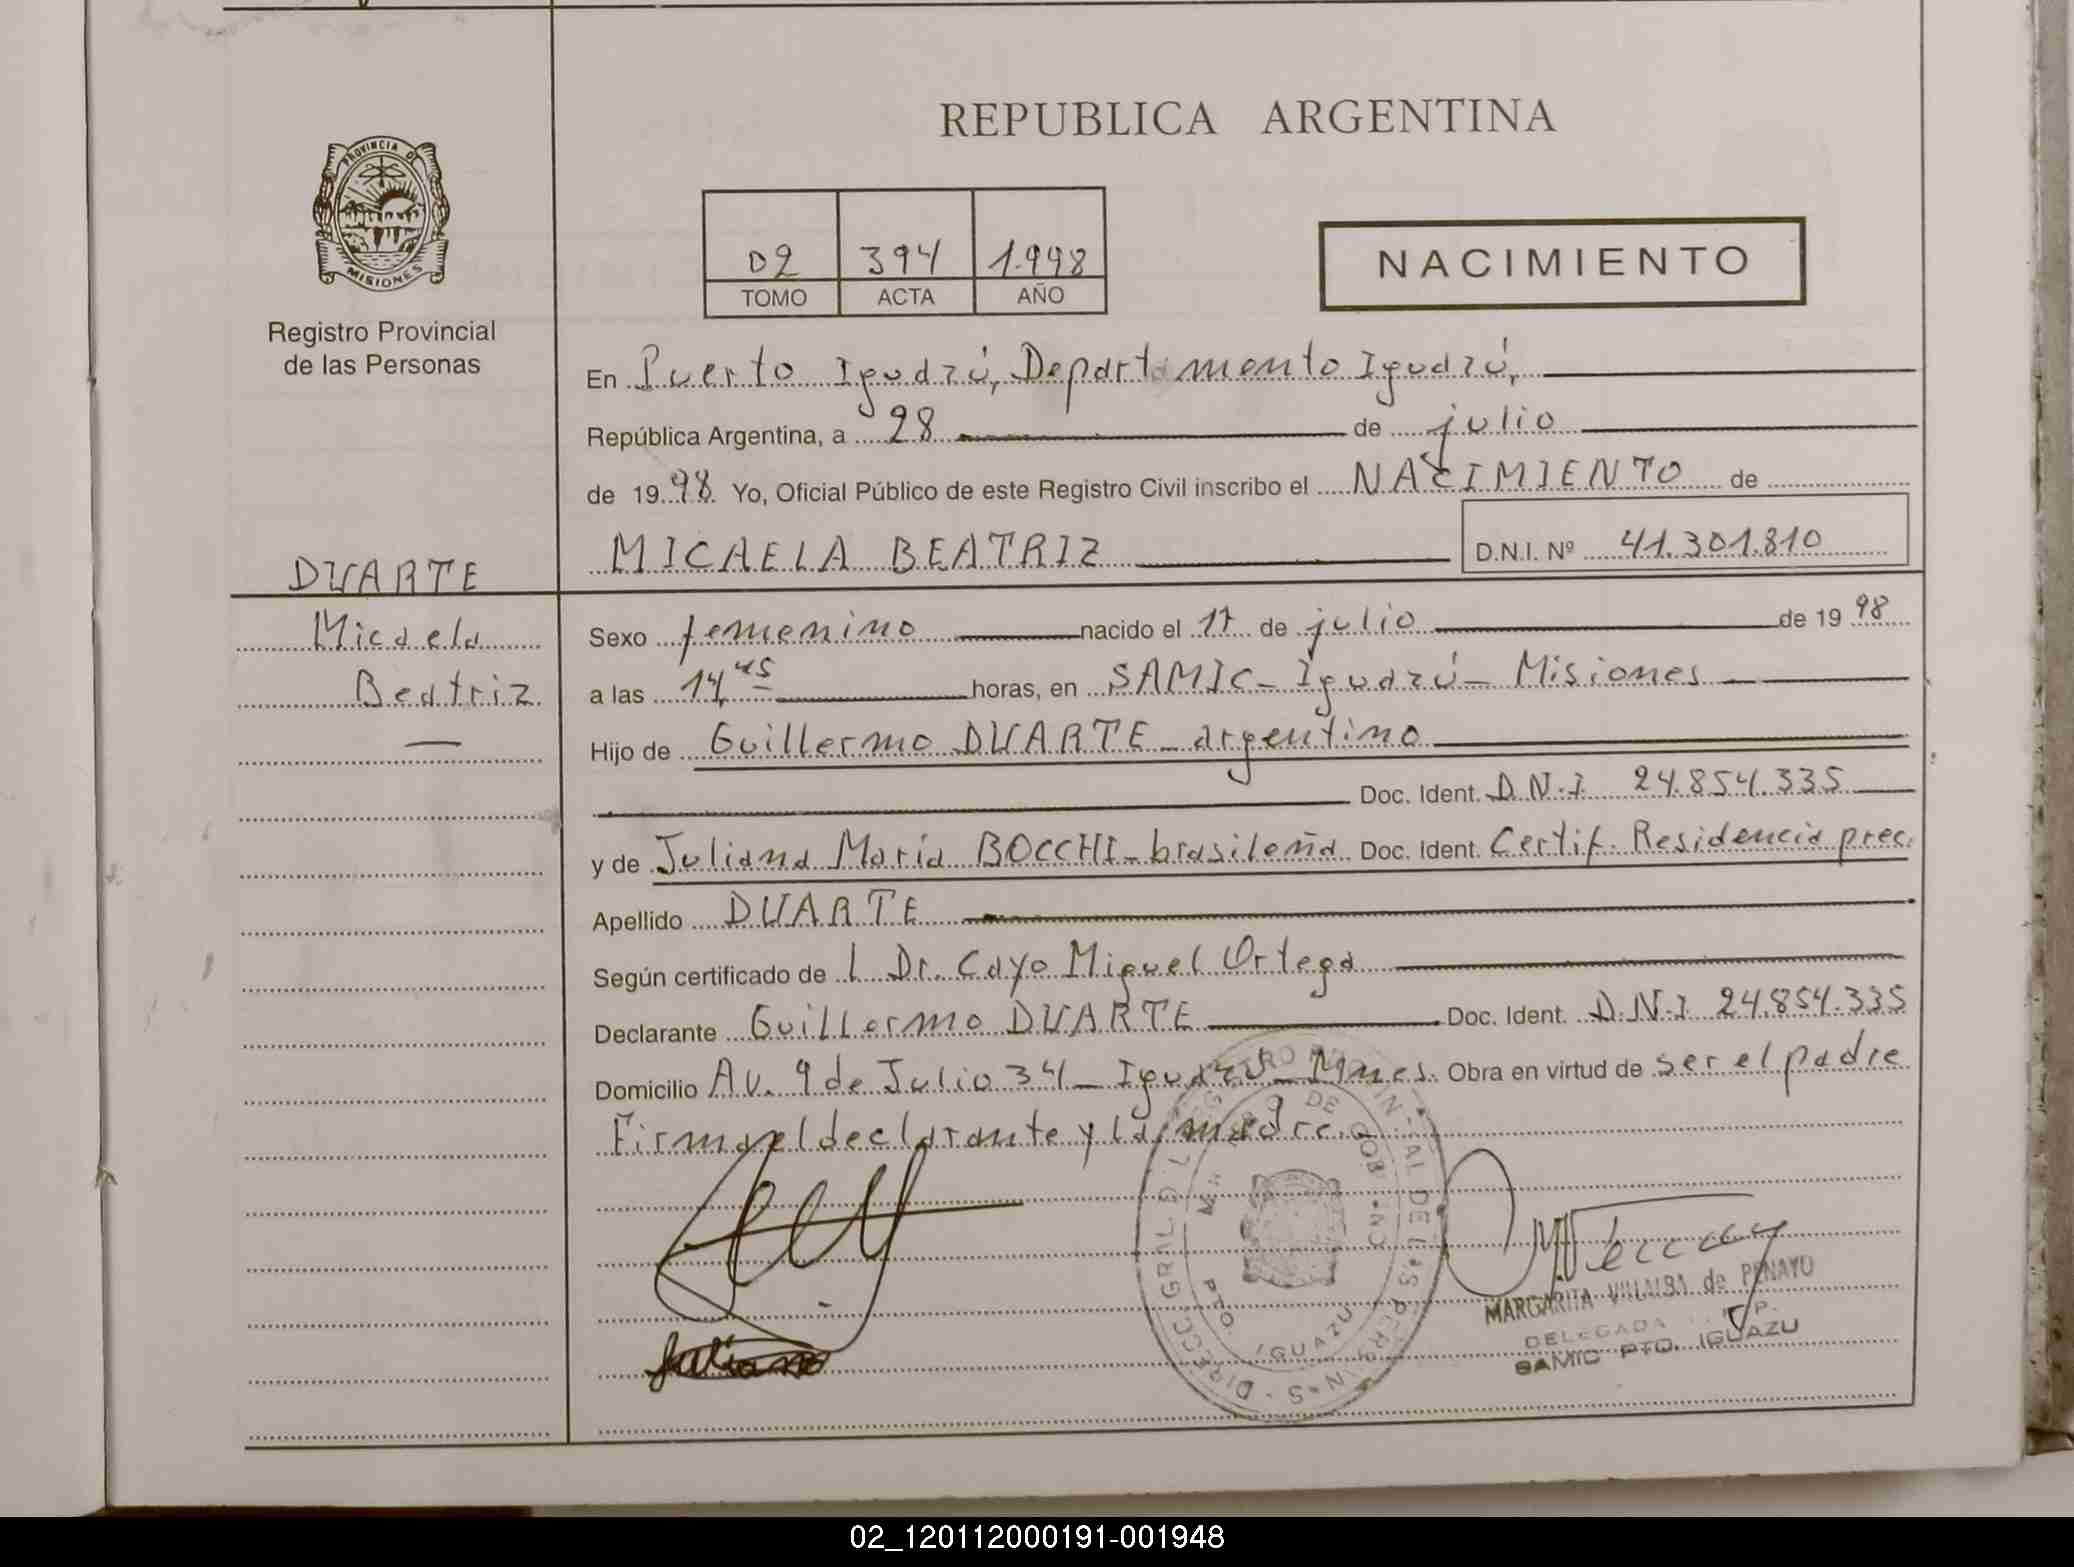 REPUBLICA ARGENTINA
PROVINCIA DE
MISIONES
Registro Provincial
de las Personas
02 394 1.998
TOMO ACTA AÑO
NACIMIENTO
En Puerto Iguazú, Departamento Iguazú,
República Argentina, a 28 de julio
de 1998 Yo, Oficial Público de este Registro Civil inscribo el NACIMIENTO de
MICAELA BEATRIZ D.N.I. Nº 41.301.810
DUARTE
Micaela
Beatriz
Sexo femenino nacido el 17 de julio de 1998
a las 14,45 horas, en SAMIC - Iguazú - Misiones
Hijo de Guillermo DUARTE - argentino
Doc. Ident. D.N.I 24.854.335
y de Juliana Maria BOCCHI - brasileña Doc. Ident. Certif. Residencia prec.
Apellido DUARTE
Según certificado de l Dr. Cayo Miguel Ortega
Declarante Guillermo DUARTE Doc. Ident. D.N.I 24.854.335
Domicilio Av. 9 de Julio 34 - Iguazú - Mnes. Obra en virtud de ser el padre
Firma el declarante y la madre.
Juliana
MARGARITA VILLALBA de PENAYO
DELEGADA
SAMIC PTO. IGUAZU
PTO. IGUAZU
02_120112000191-001948